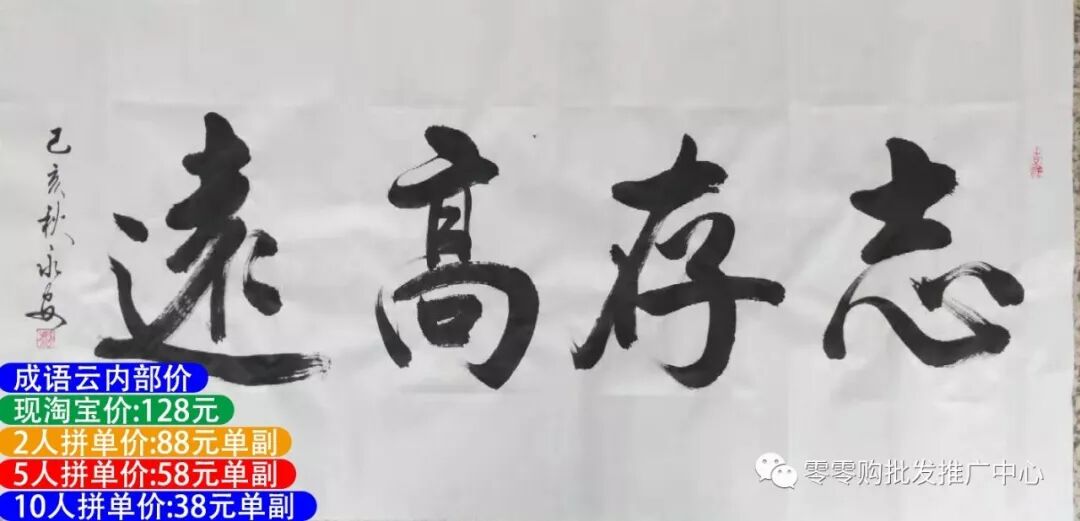 志存高遠
己亥秋永安
成语云内部价
现淘宝价:128元
2人拼单价:88元单副
5人拼单价:58元单副
10人拼单价:38元单副
零零购批发推广中心